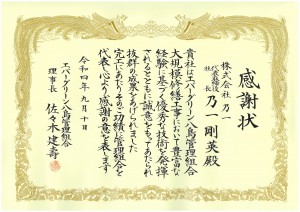 感謝状
株式会社 乃一
代表取締役社長 乃一剛英殿
貴社はエバーグリーン八島管理組合
大規模修繕工事において豊富な
経験に基づく優秀な技術を発揮
されるとともに誠意をもってあたられ
抜群の成果をあげられました
完工にあたりそのご功績に管理組合を
代表し心より感謝の意を表します
令和四年九月十日
エバーグリーン八島管理組合
理事長 佐々木建壽